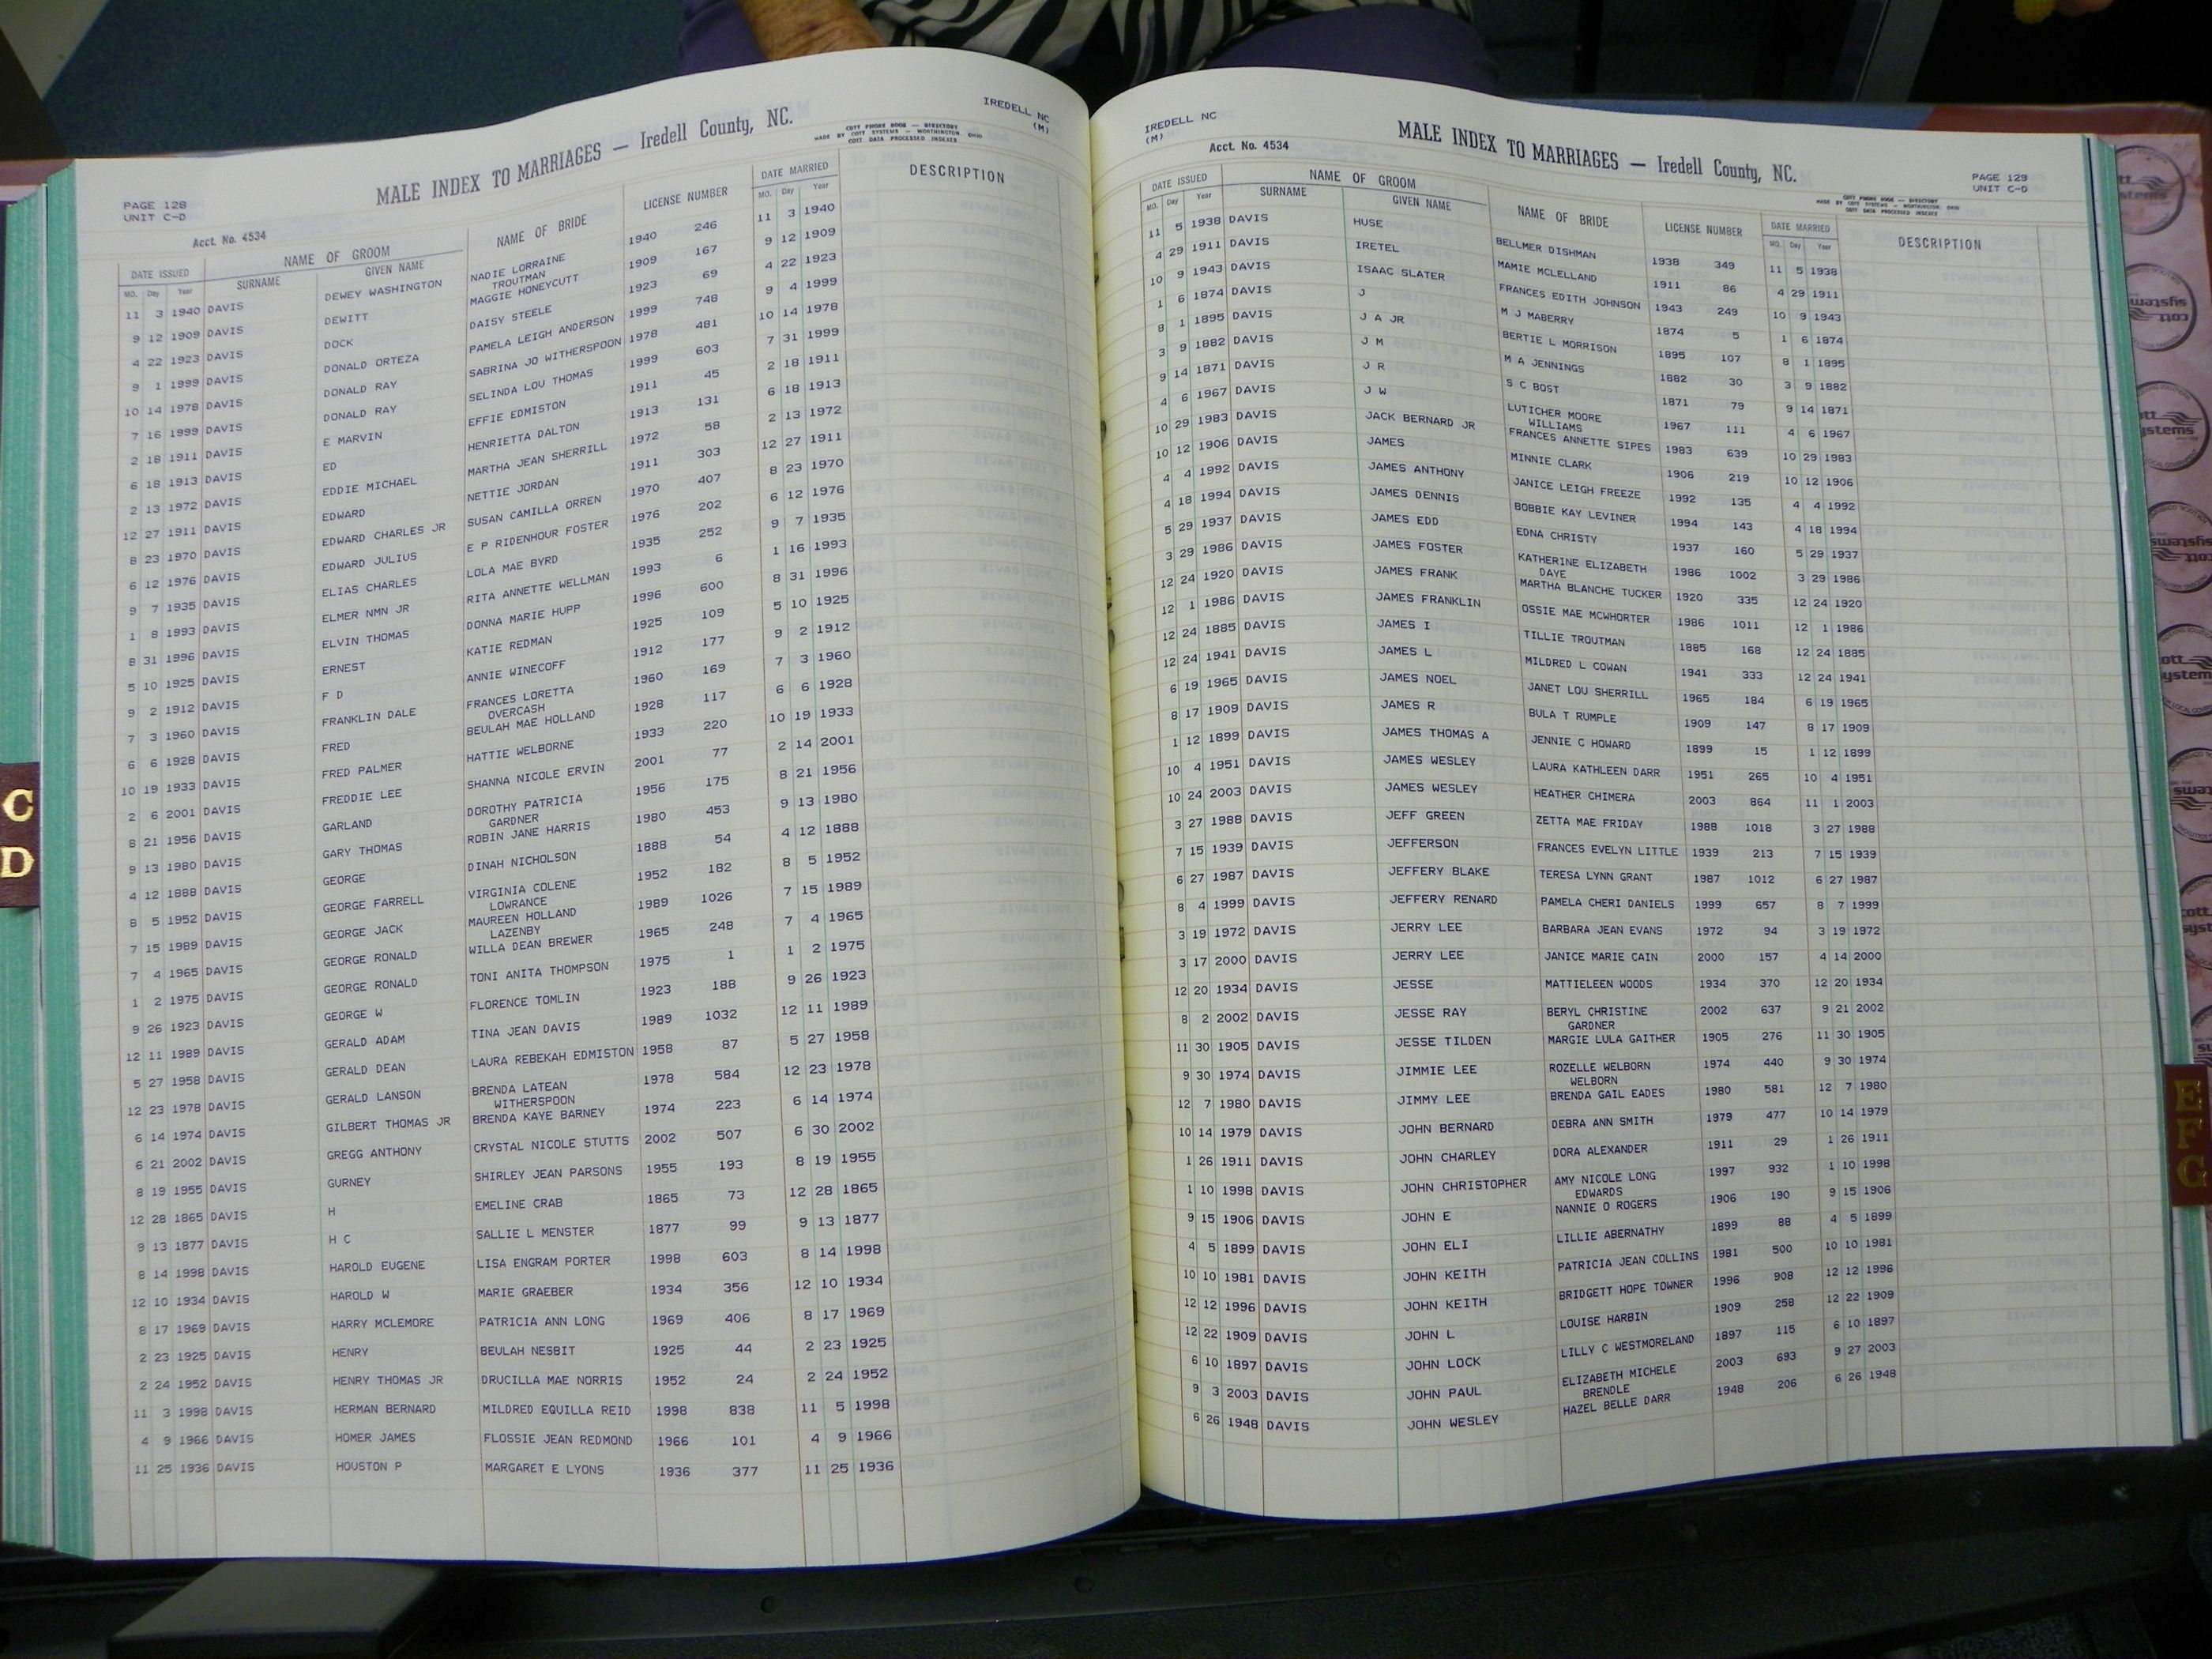 PAGE 128
UNIT C-D
MALE INDEX TO MARRIAGES — Iredell County, NC.
COTT PHONE BOOK — DIRECTORY
MADE BY COTT SYSTEMS — WORTHINGTON, OHIO
COTT DATA PROCESSED INDEXES
IREDELL NC
(M)
Acct. No. 4534
DATE ISSUED NAME OF GROOM NAME OF BRIDE LICENSE NUMBER DATE MARRIED DESCRIPTION
MO. Day Year SURNAME GIVEN NAME MO. Day Year
11 3 1940 DAVIS DEWEY WASHINGTON NADIE LORRAINE 1940 246 11 3 1940
TROUTMAN
9 12 1909 DAVIS DEWITT MAGGIE HONEYCUTT 1909 167 9 12 1909
4 22 1923 DAVIS DOCK DAISY STEELE 1923 69 4 22 1923
9 1 1999 DAVIS DONALD ORTEZA PAMELA LEIGH ANDERSON 1999 748 9 4 1999
10 14 1978 DAVIS DONALD RAY SABRINA JO WITHERSPOON 1978 481 10 14 1978
7 16 1999 DAVIS DONALD RAY SELINDA LOU THOMAS 1999 603 7 31 1999
2 18 1911 DAVIS E MARVIN EFFIE EDMISTON 1911 45 2 18 1911
6 18 1913 DAVIS ED HENRIETTA DALTON 1913 131 6 18 1913
2 13 1972 DAVIS EDDIE MICHAEL MARTHA JEAN SHERRILL 1972 58 2 13 1972
12 27 1911 DAVIS EDWARD NETTIE JORDAN 1911 303 12 27 1911
8 23 1970 DAVIS EDWARD CHARLES JR SUSAN CAMILLA ORREN 1970 407 8 23 1970
6 12 1976 DAVIS EDWARD JULIUS E P RIDENHOUR FOSTER 1976 202 6 12 1976
9 7 1935 DAVIS ELIAS CHARLES LOLA MAE BYRD 1935 252 9 7 1935
1 8 1993 DAVIS ELMER NMN JR RITA ANNETTE WELLMAN 1993 6 1 16 1993
8 31 1996 DAVIS ELVIN THOMAS DONNA MARIE HUPP 1996 600 8 31 1996
5 10 1925 DAVIS ERNEST KATIE REDMAN 1925 109 5 10 1925
9 2 1912 DAVIS F D ANNIE WINECOFF 1912 177 9 2 1912
7 3 1960 DAVIS FRANKLIN DALE FRANCES LORETTA 1960 169 7 3 1960
OVERCASH
6 6 1928 DAVIS FRED BEULAH MAE HOLLAND 1928 117 6 6 1928
10 19 1933 DAVIS FRED PALMER HATTIE WELBORNE 1933 220 10 19 1933
2 6 2001 DAVIS FREDDIE LEE SHANNA NICOLE ERVIN 2001 77 2 14 2001
8 21 1956 DAVIS GARLAND DOROTHY PATRICIA 1956 175 8 21 1956
GARDNER
9 13 1980 DAVIS GARY THOMAS ROBIN JANE HARRIS 1980 453 9 13 1980
4 12 1888 DAVIS GEORGE DINAH NICHOLSON 1888 54 4 12 1888
8 5 1952 DAVIS GEORGE FARRELL VIRGINIA COLENE 1952 182 8 5 1952
LOWRANCE
7 15 1989 DAVIS GEORGE JACK MAUREEN HOLLAND 1989 1026 7 15 1989
LAZENBY
7 4 1965 DAVIS GEORGE RONALD WILLA DEAN BREWER 1965 248 7 4 1965
1 2 1975 DAVIS GEORGE RONALD TONI ANITA THOMPSON 1975 1 1 2 1975
9 26 1923 DAVIS GEORGE W FLORENCE TOMLIN 1923 188 9 26 1923
12 11 1989 DAVIS GERALD ADAM TINA JEAN DAVIS 1989 1032 12 11 1989
5 27 1958 DAVIS GERALD DEAN LAURA REBEKAH EDMISTON 1958 87 5 27 1958
12 23 1978 DAVIS GERALD LANSON BRENDA LATEAN 1978 584 12 23 1978
WITHERSPOON
6 14 1974 DAVIS GILBERT THOMAS JR BRENDA KAYE BARNEY 1974 223 6 14 1974
6 21 2002 DAVIS GREGG ANTHONY CRYSTAL NICOLE STUTTS 2002 507 6 30 2002
8 19 1955 DAVIS GURNEY SHIRLEY JEAN PARSONS 1955 193 8 19 1955
12 28 1865 DAVIS H EMELINE CRAB 1865 73 12 28 1865
9 13 1877 DAVIS H C SALLIE L MENSTER 1877 99 9 13 1877
8 14 1998 DAVIS HAROLD EUGENE LISA ENGRAM PORTER 1998 603 8 14 1998
12 10 1934 DAVIS HAROLD W MARIE GRAEBER 1934 356 12 10 1934
8 17 1969 DAVIS HARRY MCLEMORE PATRICIA ANN LONG 1969 406 8 17 1969
2 23 1925 DAVIS HENRY BEULAH NESBIT 1925 44 2 23 1925
2 24 1952 DAVIS HENRY THOMAS JR DRUCILLA MAE NORRIS 1952 24 2 24 1952
11 3 1998 DAVIS HERMAN BERNARD MILDRED EQUILLA REID 1998 838 11 5 1998
4 9 1966 DAVIS HOMER JAMES FLOSSIE JEAN REDMOND 1966 101 4 9 1966
11 25 1936 DAVIS HOUSTON P MARGARET E LYONS 1936 377 11 25 1936
C
D
IREDELL NC
(M)
Acct. No. 4534
MALE INDEX TO MARRIAGES — Iredell County, NC.
COTT PHONE BOOK — DIRECTORY
MADE BY COTT SYSTEMS — WORTHINGTON, OHIO
COTT DATA PROCESSED INDEXES
PAGE 129
UNIT C-D
DATE ISSUED NAME OF GROOM NAME OF BRIDE LICENSE NUMBER DATE MARRIED DESCRIPTION
MO. Day Year SURNAME GIVEN NAME MO. Day Year
11 5 1938 DAVIS HUSE BELLMER DISHMAN 1938 349 11 5 1938
4 29 1911 DAVIS IRETEL MAMIE MCLELLAND 1911 86 4 29 1911
10 9 1943 DAVIS ISAAC SLATER FRANCES EDITH JOHNSON 1943 249 10 9 1943
1 6 1874 DAVIS J M J MABERRY 1874 5 1 6 1874
8 1 1895 DAVIS J A JR BERTIE L MORRISON 1895 107 8 1 1895
3 9 1882 DAVIS J M M A JENNINGS 1882 30 3 9 1882
9 14 1871 DAVIS J R S C BOST 1871 79 9 14 1871
4 6 1967 DAVIS J W LUTICHER MOORE 1967 111 4 6 1967
WILLIAMS
10 29 1983 DAVIS JACK BERNARD JR FRANCES ANNETTE SIPES 1983 639 10 29 1983
10 12 1906 DAVIS JAMES MINNIE CLARK 1906 219 10 12 1906
4 4 1992 DAVIS JAMES ANTHONY JANICE LEIGH FREEZE 1992 135 4 4 1992
4 18 1994 DAVIS JAMES DENNIS BOBBIE KAY LEVINER 1994 143 4 18 1994
5 29 1937 DAVIS JAMES EDD EDNA CHRISTY 1937 160 5 29 1937
3 29 1986 DAVIS JAMES FOSTER KATHERINE ELIZABETH 1986 1002 3 29 1986
DAYE
12 24 1920 DAVIS JAMES FRANK MARTHA BLANCHE TUCKER 1920 335 12 24 1920
12 1 1986 DAVIS JAMES FRANKLIN OSSIE MAE MCWHORTER 1986 1011 12 1 1986
12 24 1885 DAVIS JAMES I TILLIE TROUTMAN 1885 168 12 24 1885
12 24 1941 DAVIS JAMES L MILDRED L COWAN 1941 333 12 24 1941
6 19 1965 DAVIS JAMES NOEL JANET LOU SHERRILL 1965 184 6 19 1965
8 17 1909 DAVIS JAMES R BULA T RUMPLE 1909 147 8 17 1909
1 12 1899 DAVIS JAMES THOMAS A JENNIE C HOWARD 1899 15 1 12 1899
10 4 1951 DAVIS JAMES WESLEY LAURA KATHLEEN DARR 1951 265 10 4 1951
10 24 2003 DAVIS JAMES WESLEY HEATHER CHIMERA 2003 864 11 1 2003
3 27 1988 DAVIS JEFF GREEN ZETTA MAE FRIDAY 1988 1018 3 27 1988
7 15 1939 DAVIS JEFFERSON FRANCES EVELYN LITTLE 1939 213 7 15 1939
6 27 1987 DAVIS JEFFERY BLAKE TERESA LYNN GRANT 1987 1012 6 27 1987
8 4 1999 DAVIS JEFFERY RENARD PAMELA CHERI DANIELS 1999 657 8 7 1999
3 19 1972 DAVIS JERRY LEE BARBARA JEAN EVANS 1972 94 3 19 1972
3 17 2000 DAVIS JERRY LEE JANICE MARIE CAIN 2000 157 4 14 2000
12 20 1934 DAVIS JESSE MATTIELEEN WOODS 1934 370 12 20 1934
8 2 2002 DAVIS JESSE RAY BERYL CHRISTINE 2002 637 9 21 2002
GARDNER
11 30 1905 DAVIS JESSE TILDEN MARGIE LULA GAITHER 1905 276 11 30 1905
9 30 1974 DAVIS JIMMIE LEE ROZELLE WELBORN 1974 440 9 30 1974
WELBORN
12 7 1980 DAVIS JIMMY LEE BRENDA GAIL EADES 1980 581 12 7 1980
10 14 1979 DAVIS JOHN BERNARD DEBRA ANN SMITH 1979 477 10 14 1979
1 26 1911 DAVIS JOHN CHARLEY DORA ALEXANDER 1911 29 1 26 1911
1 10 1998 DAVIS JOHN CHRISTOPHER AMY NICOLE LONG 1997 932 1 10 1998
EDWARDS
9 15 1906 DAVIS JOHN E NANNIE O ROGERS 1906 190 9 15 1906
4 5 1899 DAVIS JOHN ELI LILLIE ABERNATHY 1899 88 4 5 1899
10 10 1981 DAVIS JOHN KEITH PATRICIA JEAN COLLINS 1981 500 10 10 1981
12 12 1996 DAVIS JOHN KEITH BRIDGETT HOPE TOWNER 1996 908 12 12 1996
12 22 1909 DAVIS JOHN L LOUISE HARBIN 1909 258 12 22 1909
6 10 1897 DAVIS JOHN LOCK LILLY C WESTMORELAND 1897 115 6 10 1897
9 3 2003 DAVIS JOHN PAUL ELIZABETH MICHELE 2003 693 9 27 2003
BRENDLE
6 26 1948 DAVIS JOHN WESLEY HAZEL BELLE DARR 1948 206 6 26 1948
E
F
G